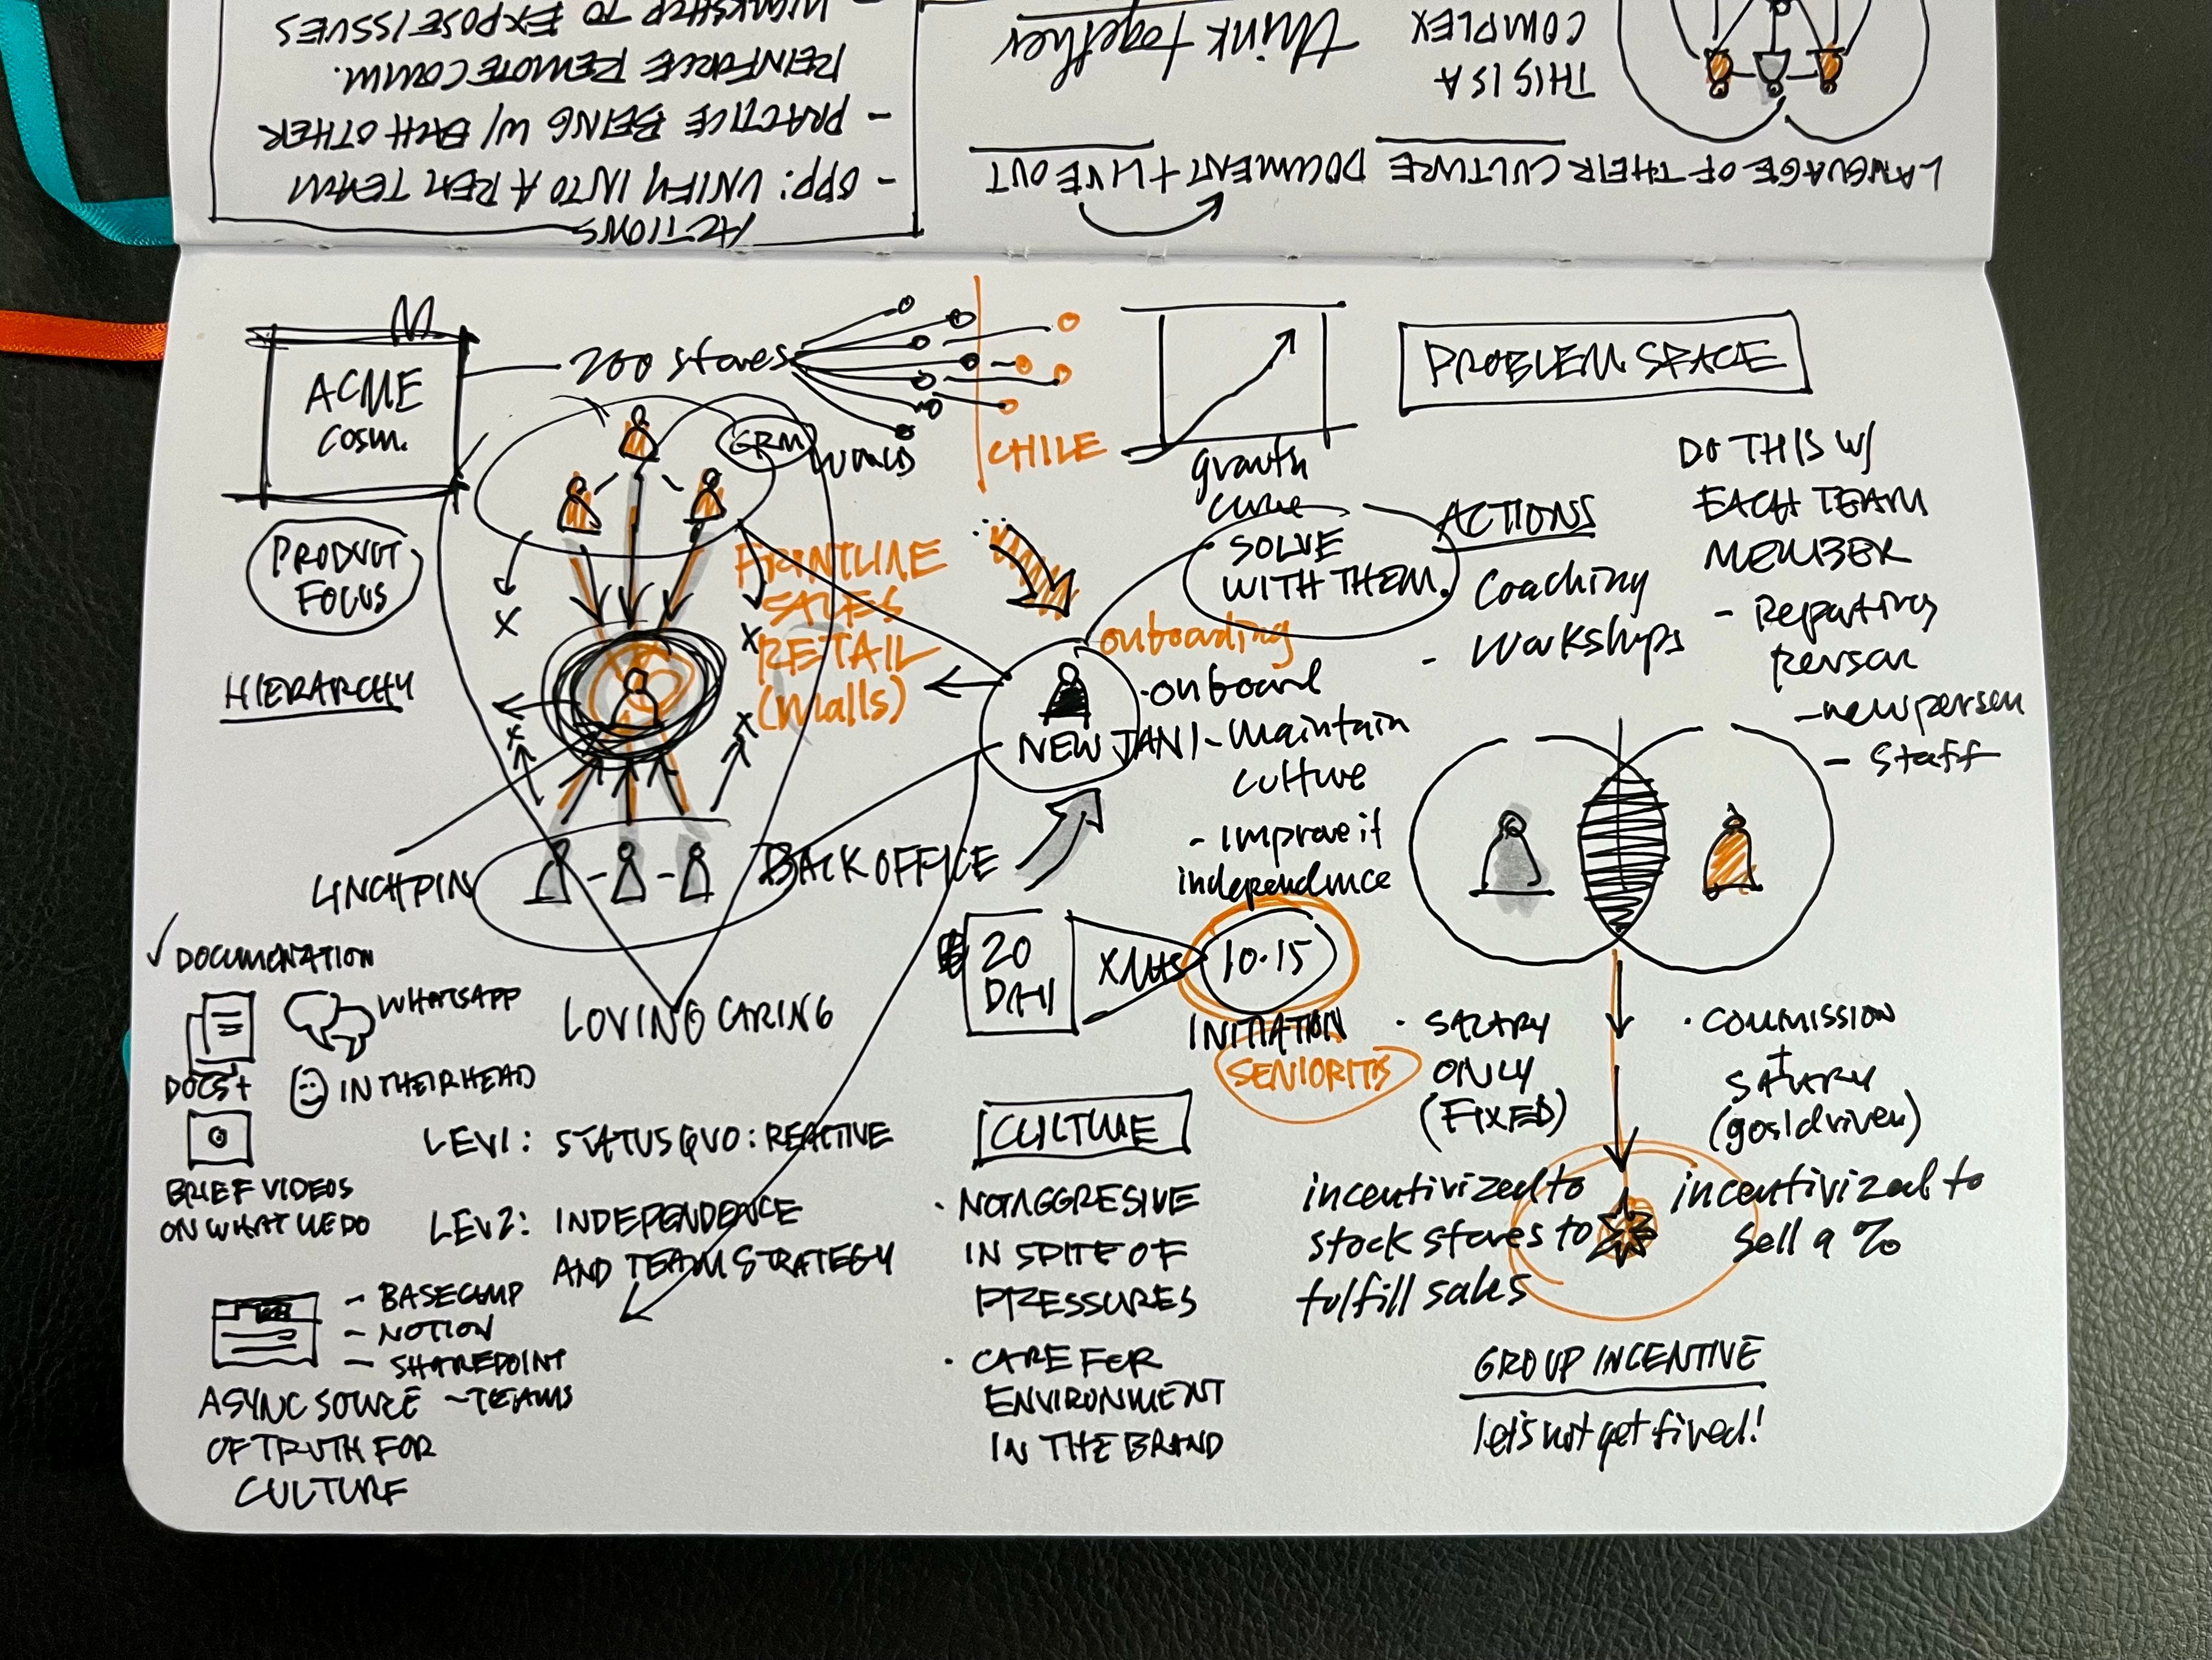 WORKSHOP TO EXPOSE ISSUES
REINFORCE REMOTE COMM.
- PRACTICE BEING W/ EACH OTHER
- OPP: UNIFY INTO A REM TEAM
ACTIONS
think together
THIS IS A
COMPLEX
LANGUAGE OF THEIR CULTURE DOCUMENT + LIVE OUT
ACME
COSM.
200 stores
GRM
WORLD
CHILE
growth
curve
PROBLEM SPACE
PRODUCT
FOCUS
HIERARCHY
FRONTLINE
SALES
RETAIL
(malls)
LINCHPIN
BACK OFFICE
LOVING CARING
SOLVE
WITH THEM.
ACTIONS
Coaching
- Workshops
DO THIS W/
EACH TEAM
MEMBER
- Reporting
person
- new person
- Staff
onboarding
NEW JAN 1
· onboard
- Maintain
culture
- Improve it
independence
20
DAY
10·15
INITIATION
SENIORITY
✓ DOCUMENTATION
WHATSAPP
DOCS +
IN THEIR HEAD
BRIEF VIDEOS
ON WHAT WE DO
- BASECAMP
- NOTION
- SHAREPOINT
- TEAMS
ASYNC SOURCE
OF TRUTH FOR
CULTURE
LEV1: STATUS QUO: REACTIVE
LEV2: INDEPENDENCE
AND TEAM STRATEGY
CULTURE
· NOT AGGRESIVE
IN SPITE OF
PRESSURES
· CARE FOR
ENVIRONMENT
IN THE BRAND
· SALARY
ONLY
(FIXED)
incentivized to
stock stores to
fulfill sales
· COMMISSION
+
SALARY
(goal driven)
incentivized to
sell a %
GROUP INCENTIVE
let's not get fired!